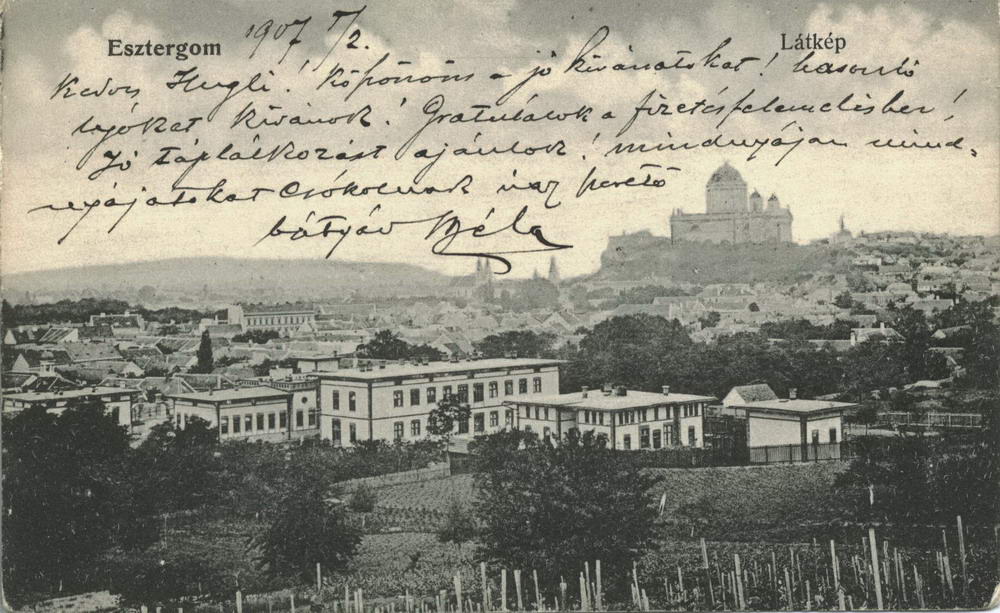 Esztergom
1907 5/2.
Látkép
Kedves Hugli! Köszönöm a jó kívánatokat! hasonló
jókat kívánok! Gratulálok a fizetésfelemelésher!
Jó táplálkozást ajánlok! mindnyájan mind-
nyájatokat csókolnak igaz szerető
bátyád Béla